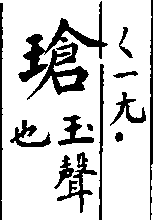 ㄑㄧㄤ•
瑲玉聲
也